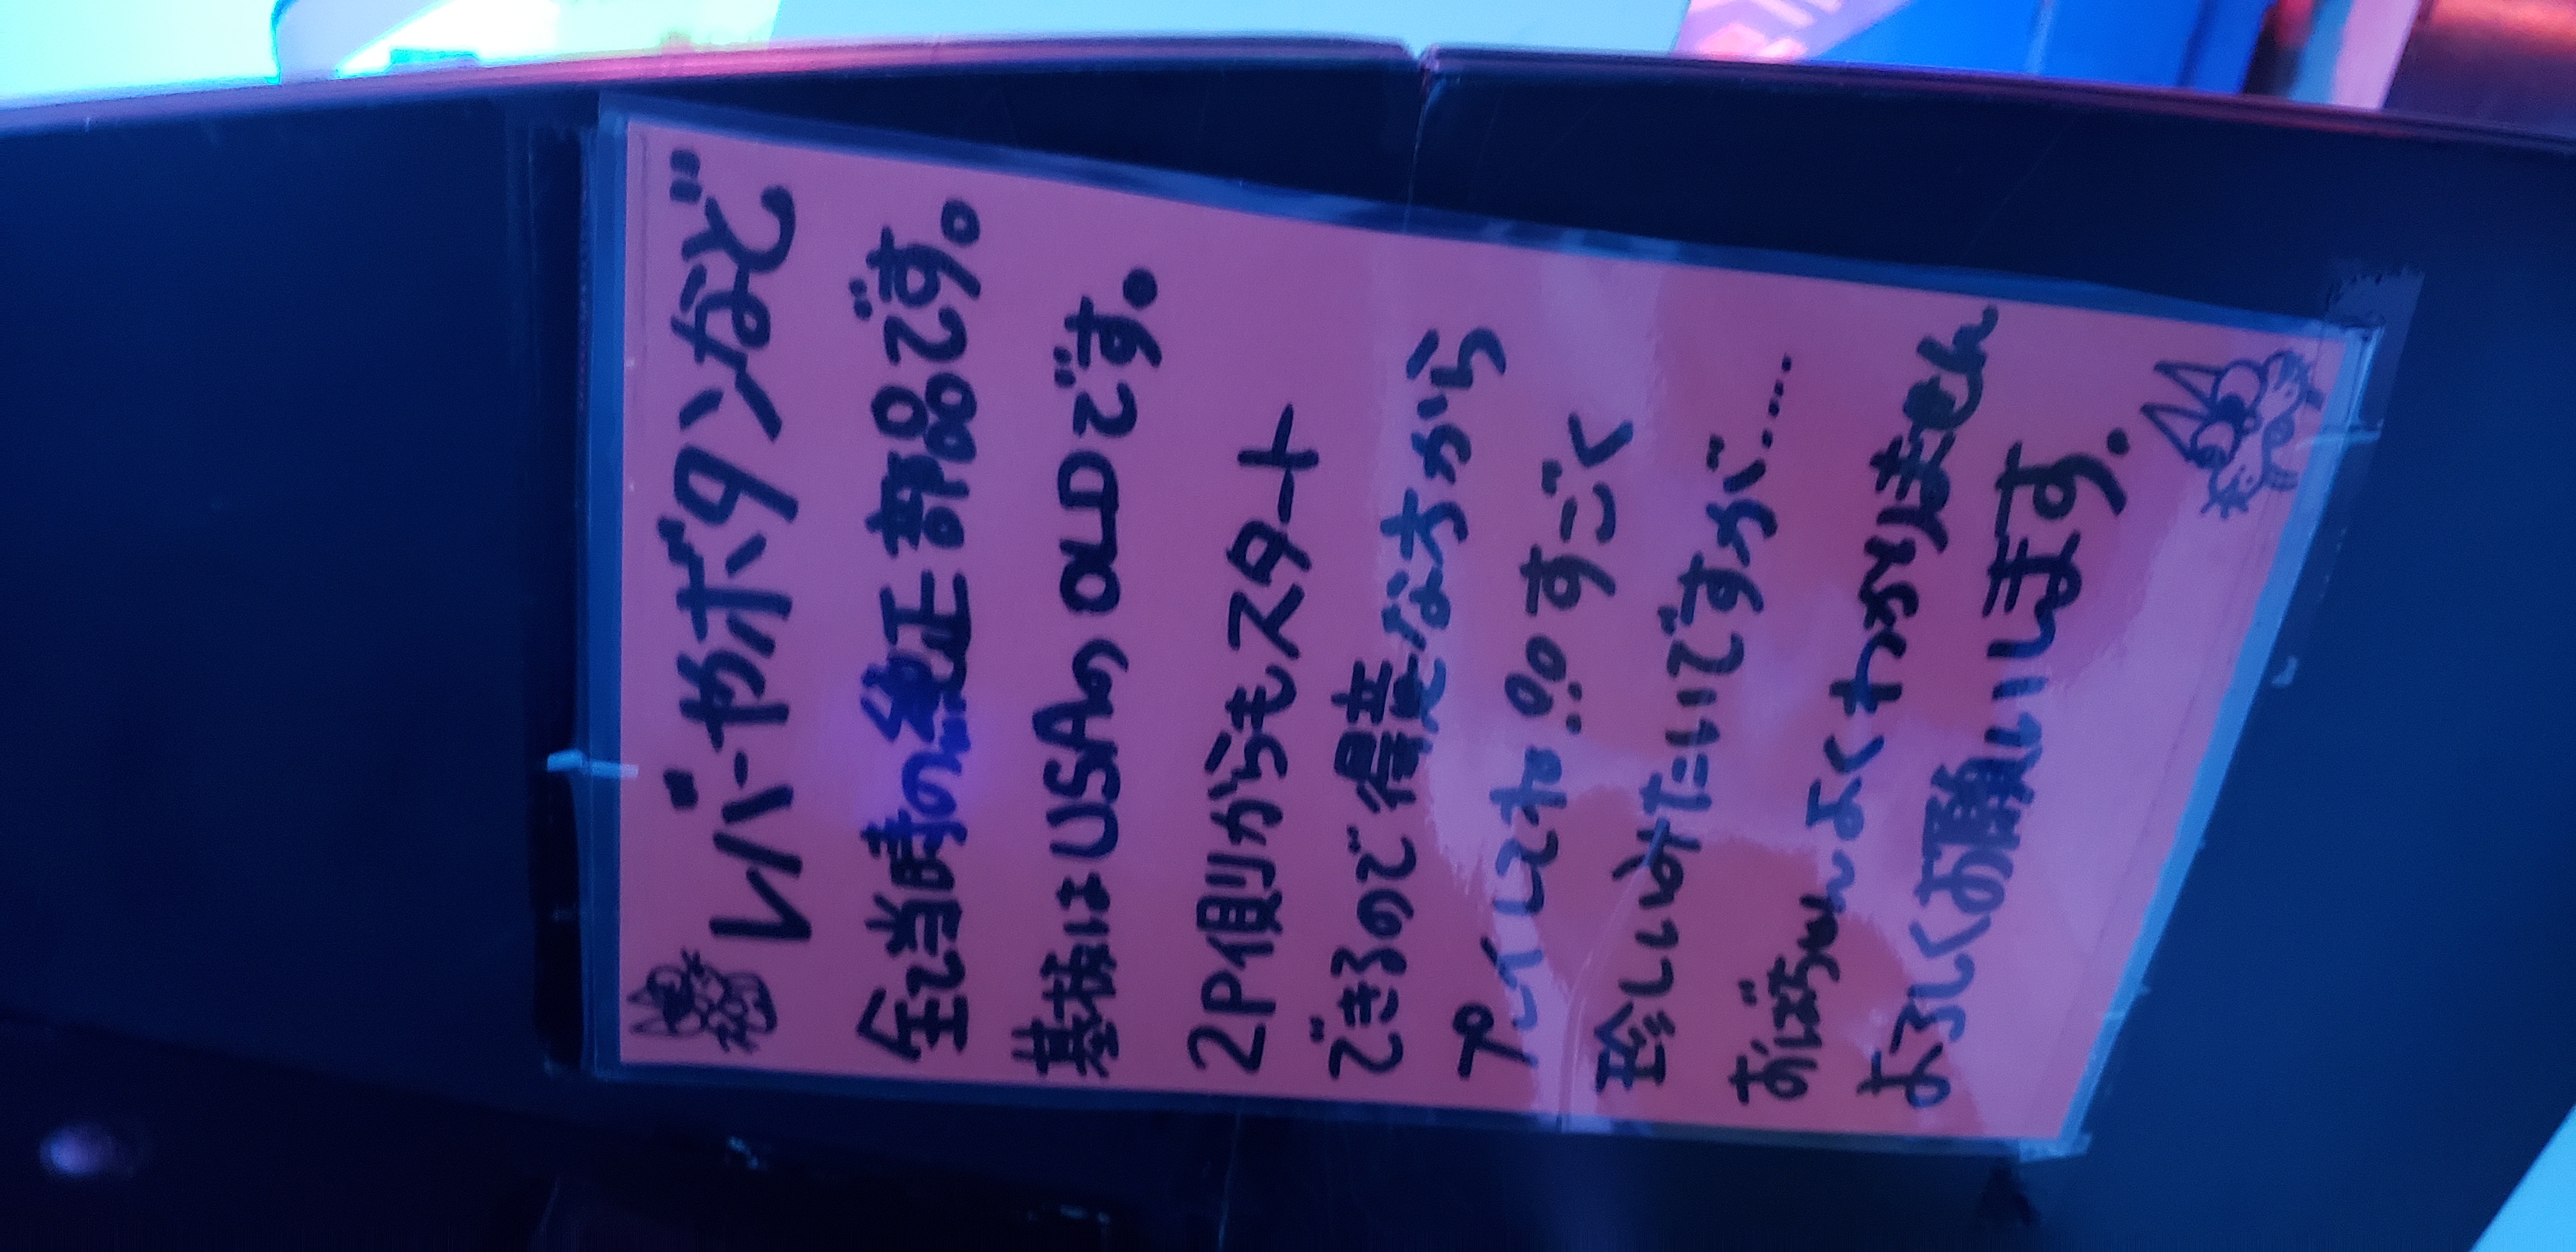 レバーやボタンなど
全て当時の純正部品です。
基板はUSAのOLDです。
2P側からもスタート
できるので得意な方から
プレイしてね!!すごく
珍しいみたいですが……
おばちゃんよくわかりません
よろしくお願いします.